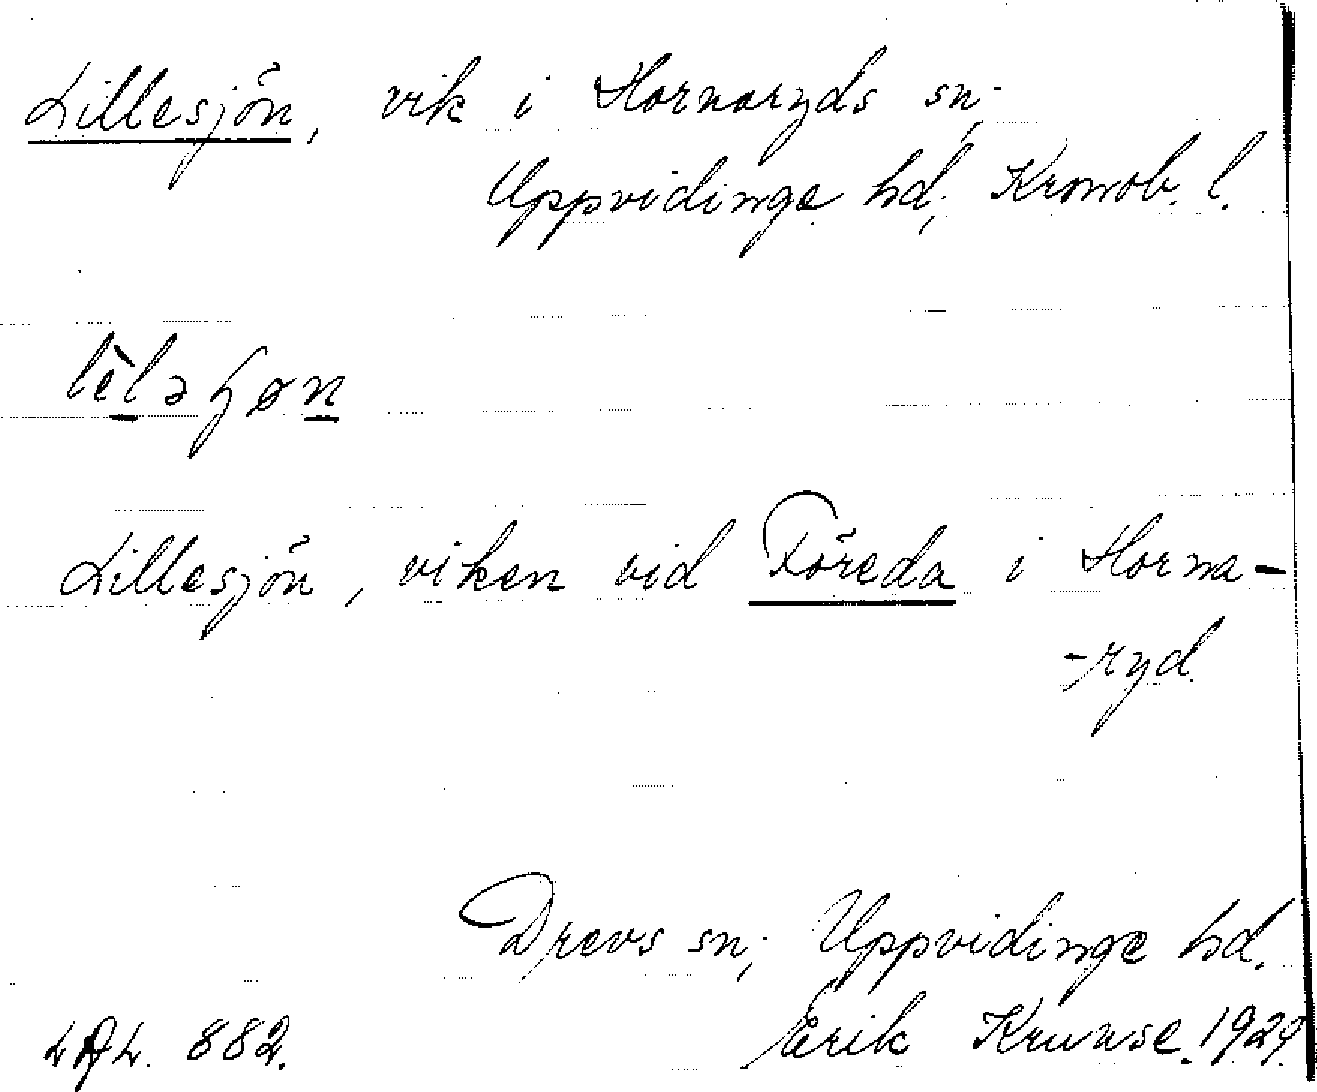 Lillesjön, vik i Hornaryds sn,
Uppvidinge hd, Kronob. l.
Lillesjön, viken vid Föreda i Horna-
-ryd
Drevs sn, Uppvidinge hd.
LAL. 882. Erik Kruuse. 1924.